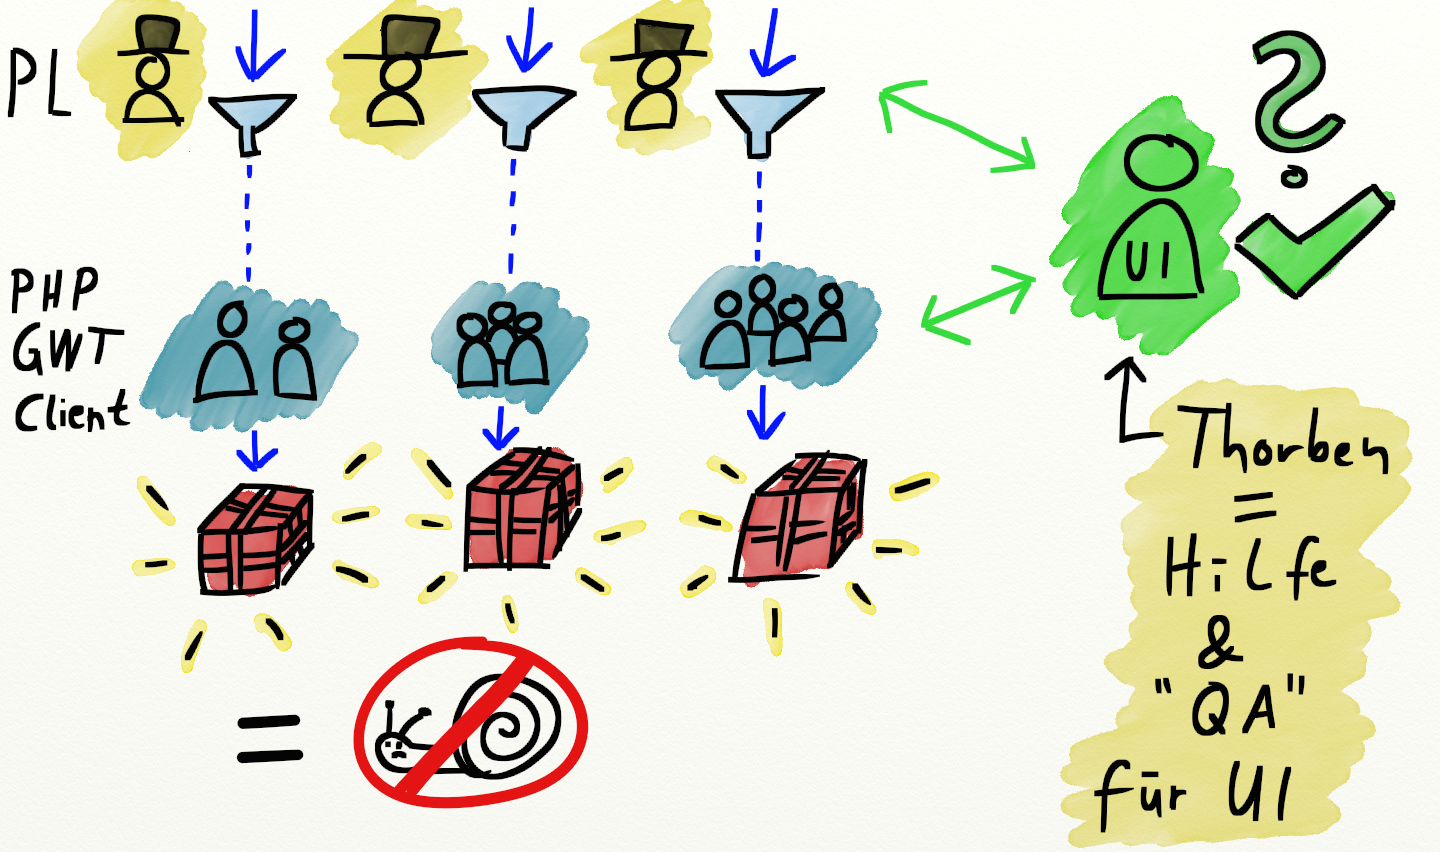 PL
PHP
GWT
Client
UI
?
Thorben
=
Hilfe
&
"QA"
für UI
=